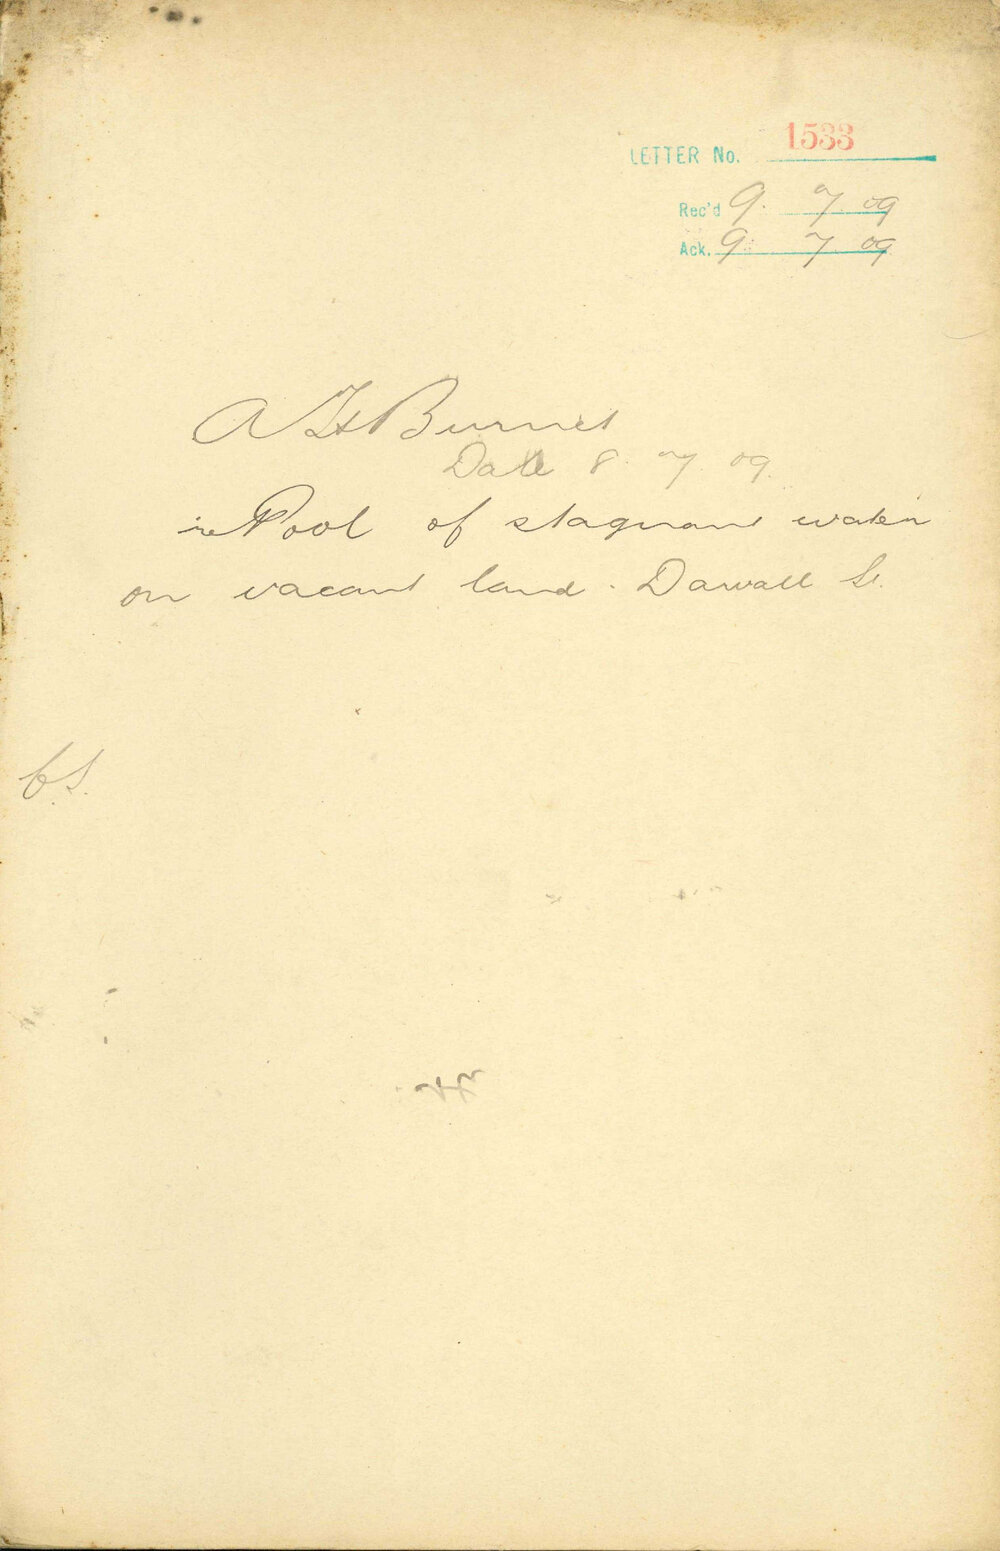 LETTER No. 1533
Rec'd 9 7 09
Ack. 9 7 09
A H Burnet
Date 8 7 09
re Pool of stagnant water
on vacant land. Darvall St.